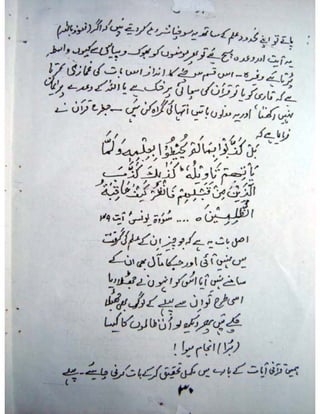 پاتے تو اپنے محدود علم کے ساتھ یہ سوچنا شروع کر دیتے ہیں کہ اگر (نعوذ باللہ)
یہ آیت اور وعدہ سچ ہے تو پھر مومنوں کو بھوک و پیاس سے کیوں واسطہ
پڑتا ہے وغیرہ۔ اس قسم کا انداز اس بات کی غمازی کرتا
ہے کہ قاری کو یا تو قرآن کی سچائی پر شک ہے یا اللہ کے وعدے پر ایمان
نہیں رکھتا اور یہ دونوں باتیں انتہائی گمراہ کن ہیں جسے قرآن نے
فرمایا ہے کہ
بَلْ كَذَّبُوا بِمَا لَمْ يُحِيطُوا بِعِلْمِهِ وَلَمَّا
يَأْتِهِمْ تَأْوِيلُهُ كَذَٰلِكَ كَذَّبَ
الَّذِينَ مِنْ قَبْلِهِمْ فَانْظُرْ كَيْفَ كَانَ عَاقِبَةُ
الظَّالِمِينَ ۔۔۔۔ سورۃ یونس آیت ۳۹
اصل بات یہ ہے کہ جو چیز ان کے علم کی گرفت
میں نہیں آئی اور جس کا مآل بھی ان کے
سامنے نہیں آیا اس کو انہوں نے جھٹلا دیا
اسی طرح تو ان سے پہلے کے لوگ بھی جھٹلا
چکے ہیں پھر دیکھ لو ان ظالموں کا کیسا
(برا) انجام ہوا!
ہمیں قرآنی آیات کے بارے میں مکمل تحقیق کر کے بات کرنی چاہیے۔ پہلے
۳۰